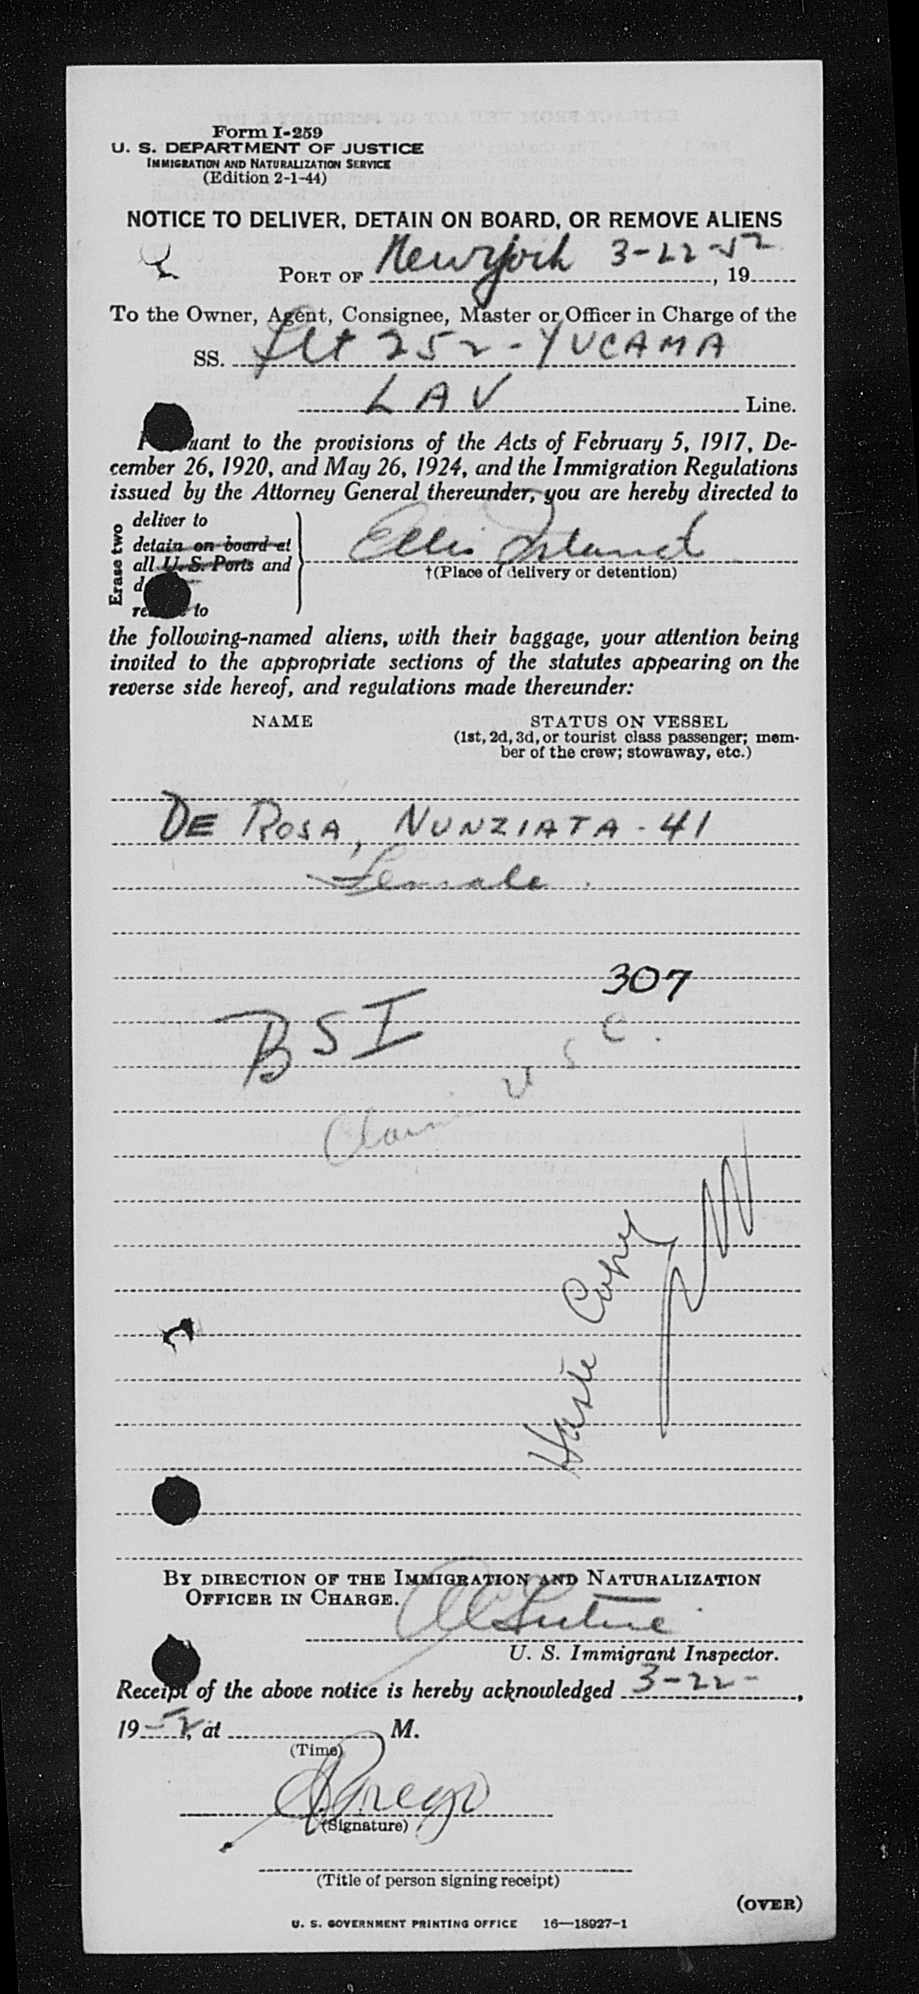 Form I-259
U. S. DEPARTMENT OF JUSTICE
IMMIGRATION AND NATURALIZATION SERVICE
(Edition 2-1-44)
NOTICE TO DELIVER, DETAIN ON BOARD, OR REMOVE ALIENS
PORT OF New York 3-22-52, 19
To the Owner, Agent, Consignee, Master or Officer in Charge of the
SS. Flt 252-YUCAMA
LAV Line.
Pursuant to the provisions of the Acts of February 5, 1917, De-
cember 26, 1920, and May 26, 1924, and the Immigration Regulations
issued by the Attorney General thereunder, you are hereby directed to
Erase two
deliver to
detain on board at
all U. S. Ports and
to
Ellis Island
†(Place of delivery or detention)
the following-named aliens, with their baggage, your attention being
invited to the appropriate sections of the statutes appearing on the
reverse side hereof, and regulations made thereunder:
NAME STATUS ON VESSEL
(1st, 2d, 3d, or tourist class passenger; mem-
ber of the crew; stowaway, etc.)
DE ROSA, NUNZIATA - 41
Female
307
BSI
Claim U S C.
Copy
BY DIRECTION OF THE IMMIGRATION AND NATURALIZATION
OFFICER IN CHARGE.
U. S. Immigrant Inspector.
Receipt of the above notice is hereby acknowledged 3-22-,
19-52, at M.
(Time)
(Signature)
(Title of person signing receipt)
(OVER)
U. S. GOVERNMENT PRINTING OFFICE 16—18927-1